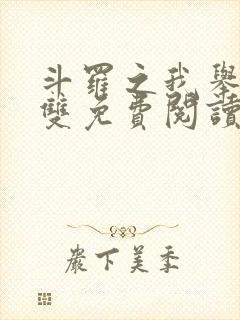 斗羅之我舉
雙免費閱讀
巖下美季